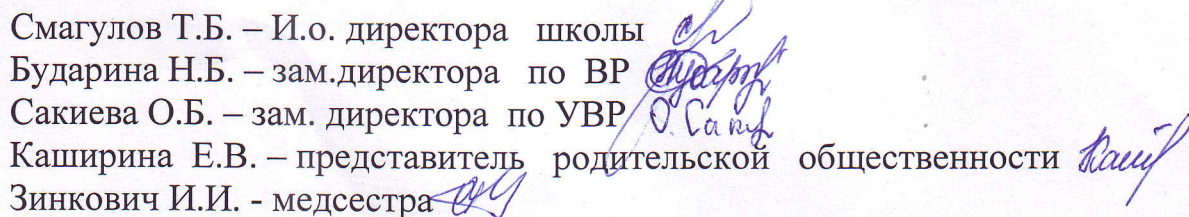 Смагулов Т.Б. – И.о. директора школы
Бударина Н.Б. – зам.директора по ВР
Сакиева О.Б. – зам. директора по УВР О. Сакиев
Каширина Е.В. – представитель родительской общественности
Зинкович И.И. - медсестра